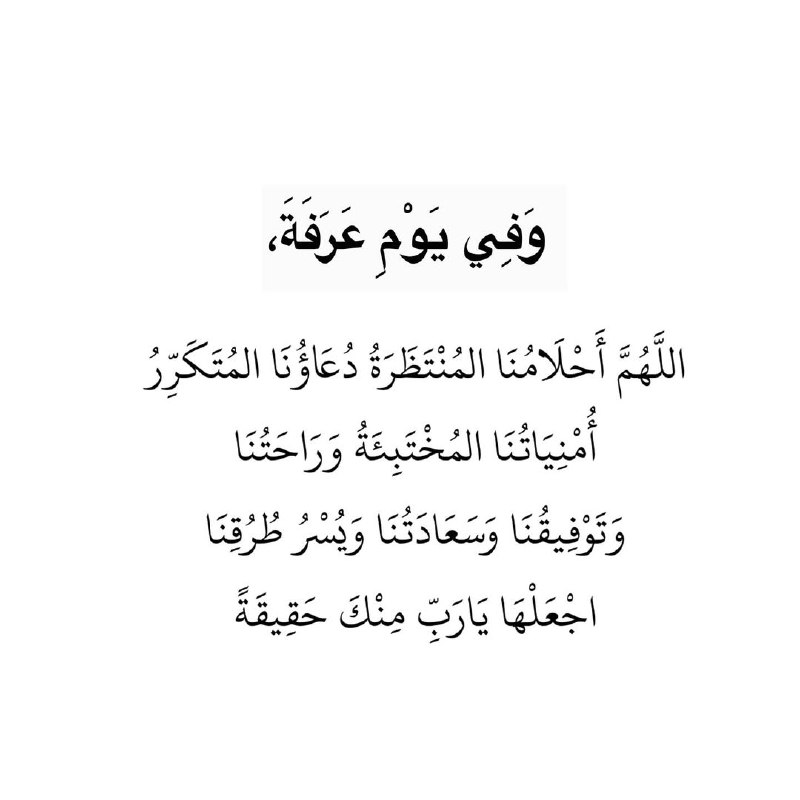 وَفِي يَوْمِ عَرَفَةَ،
اللَّهُمَّ أَحْلَامُنَا المُنْتَظَرَةُ دُعَاؤُنَا المُتَكَرِّرُ
أُمْنِيَاتُنَا المُخْتَبِئَةُ وَرَاحَتُنَا
وَتَوْفِيقُنَا وَسَعَادَتُنَا وَيُسْرُ طُرُقِنَا
اجْعَلْهَا يَارَبِّ مِنْكَ حَقِيقَةً